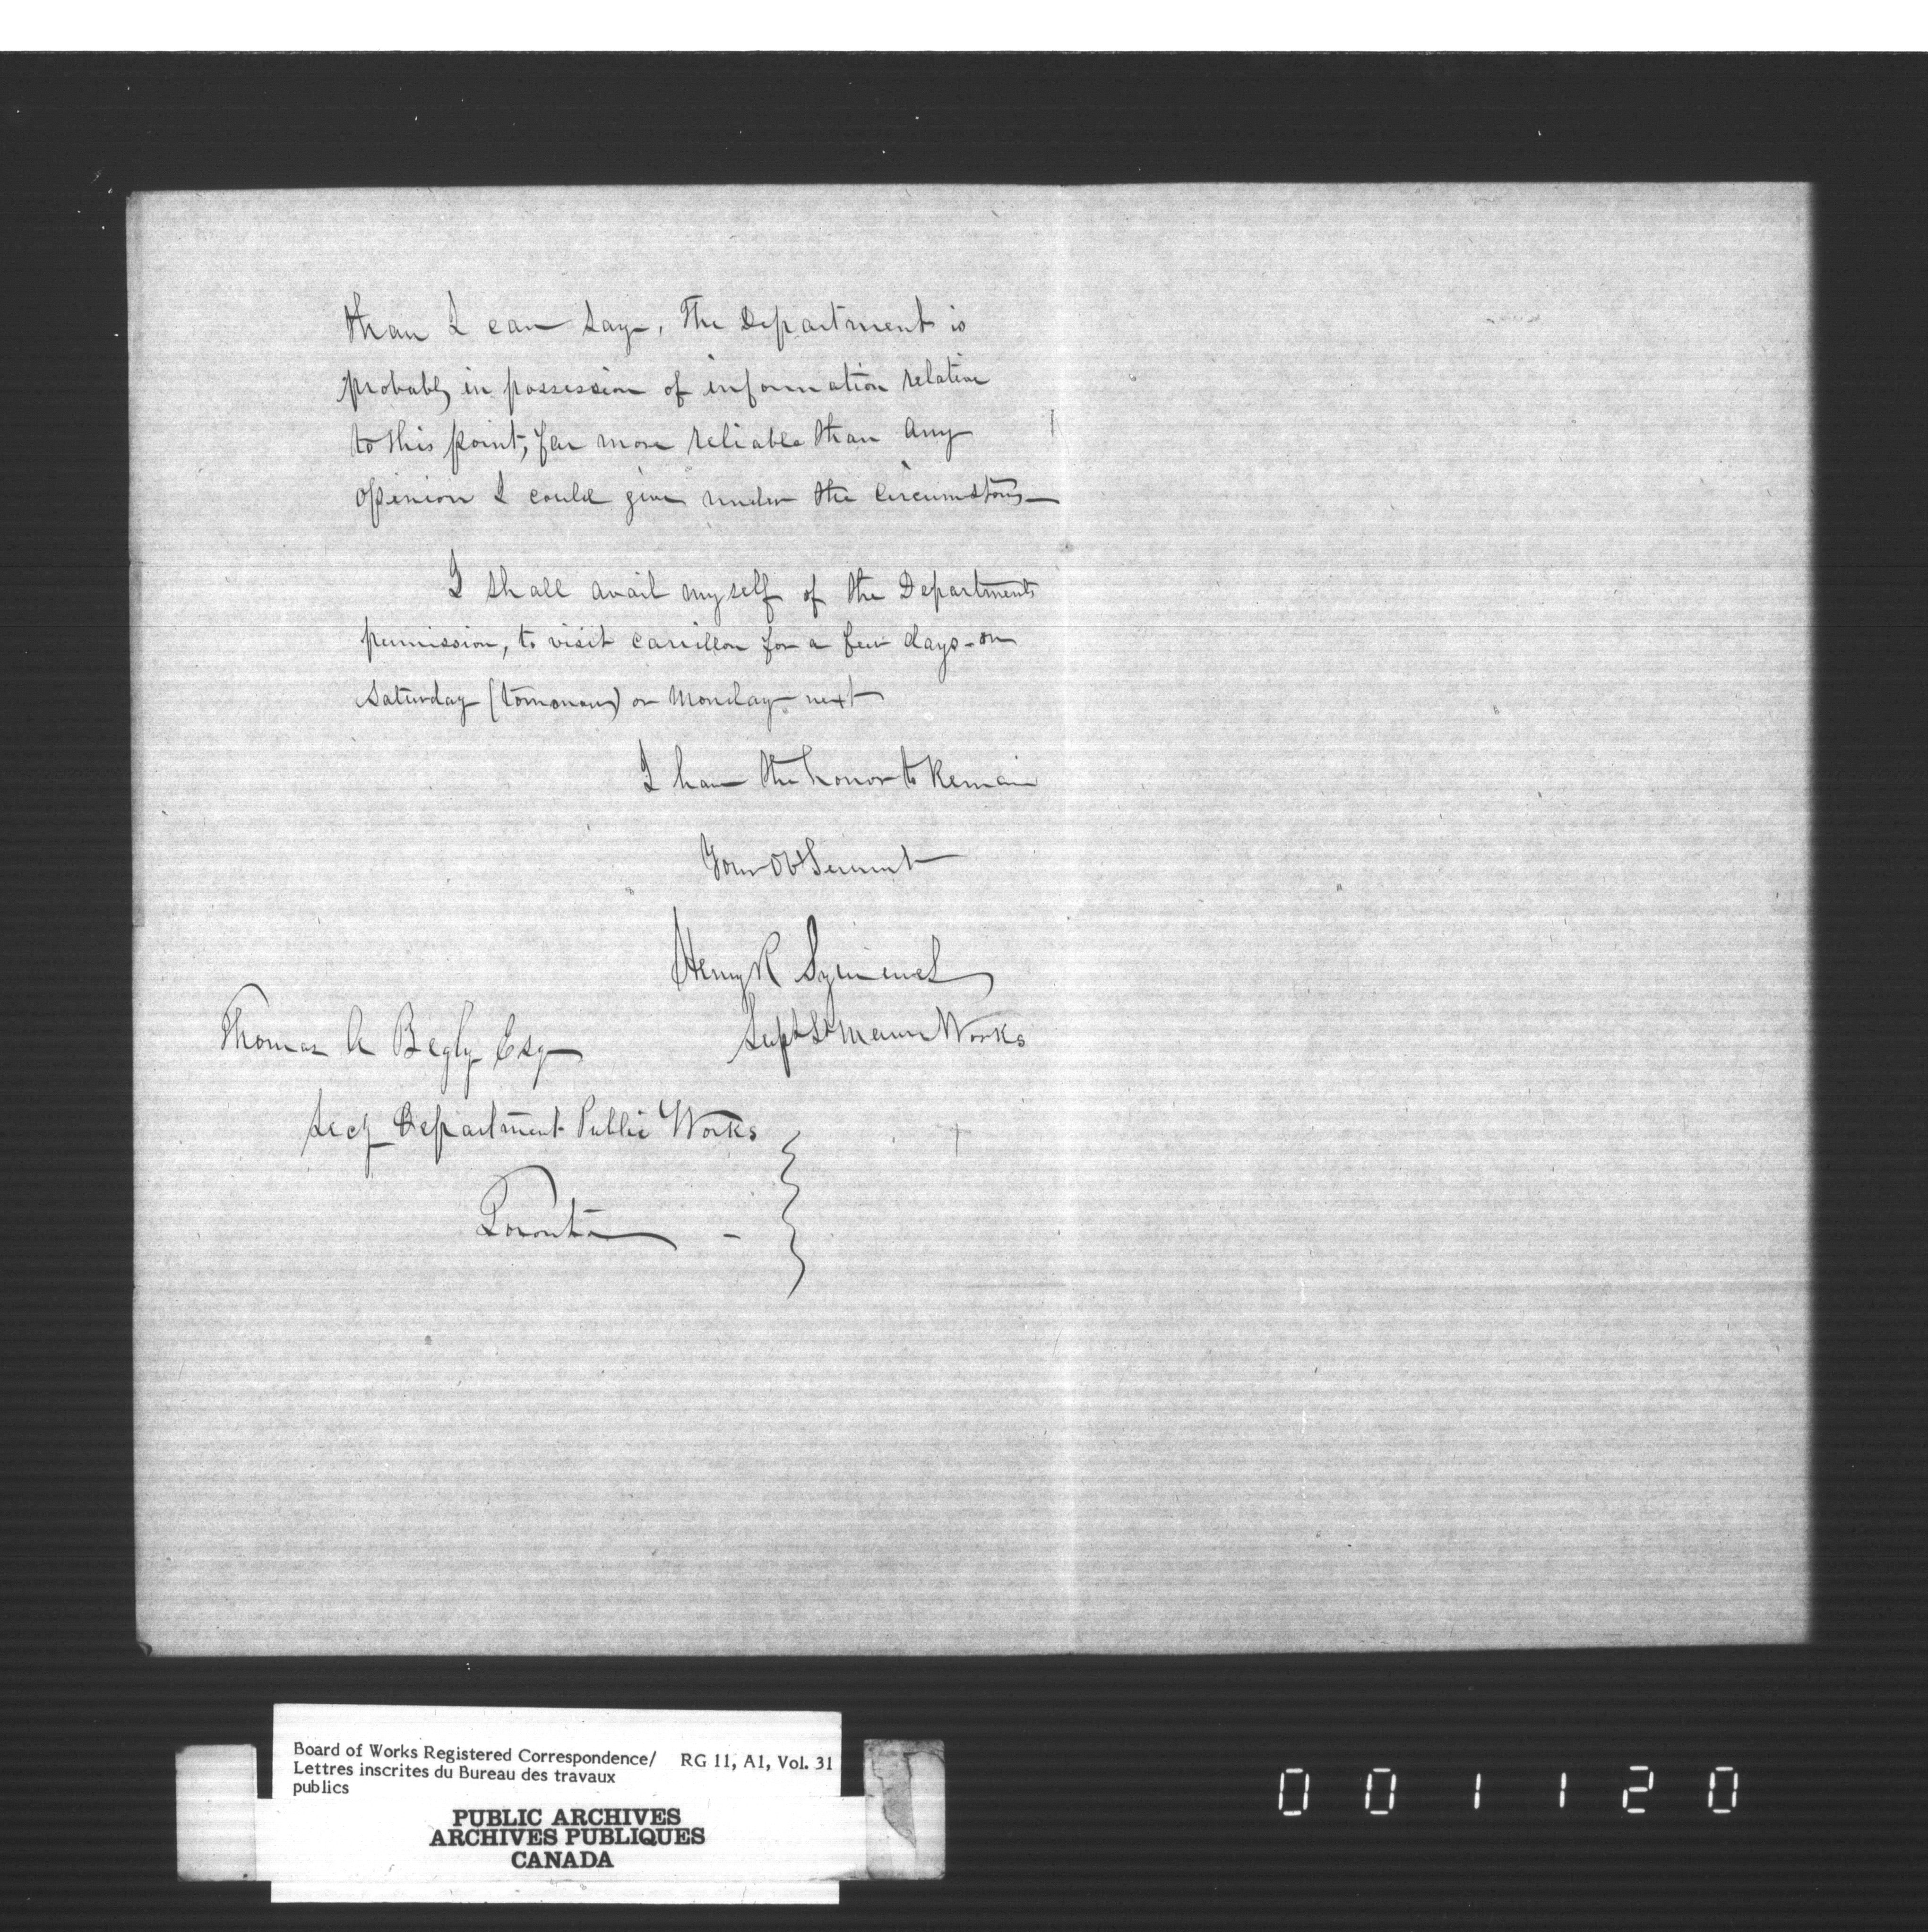 than I can say. The Department is
probably in possession of information relative
to this point, far more reliable than any
opinion I could give under the Circumstances
I shall avail myself of the Departments
permission, to visit Carillon for a few days - on
Saturday (tomorrow) or Monday next
I have the honor to Remain
Your Obt Servant
Henry R Symmes
Supt St Maurice Works
Thomas A Begly Esq
Secy Department Public Works
Toronto -
Board of Works Registered Correspondence/ RG 11, A1, Vol. 31
Lettres inscrites du Bureau des travaux
publics
PUBLIC ARCHIVES
ARCHIVES PUBLIQUES
CANADA
001120